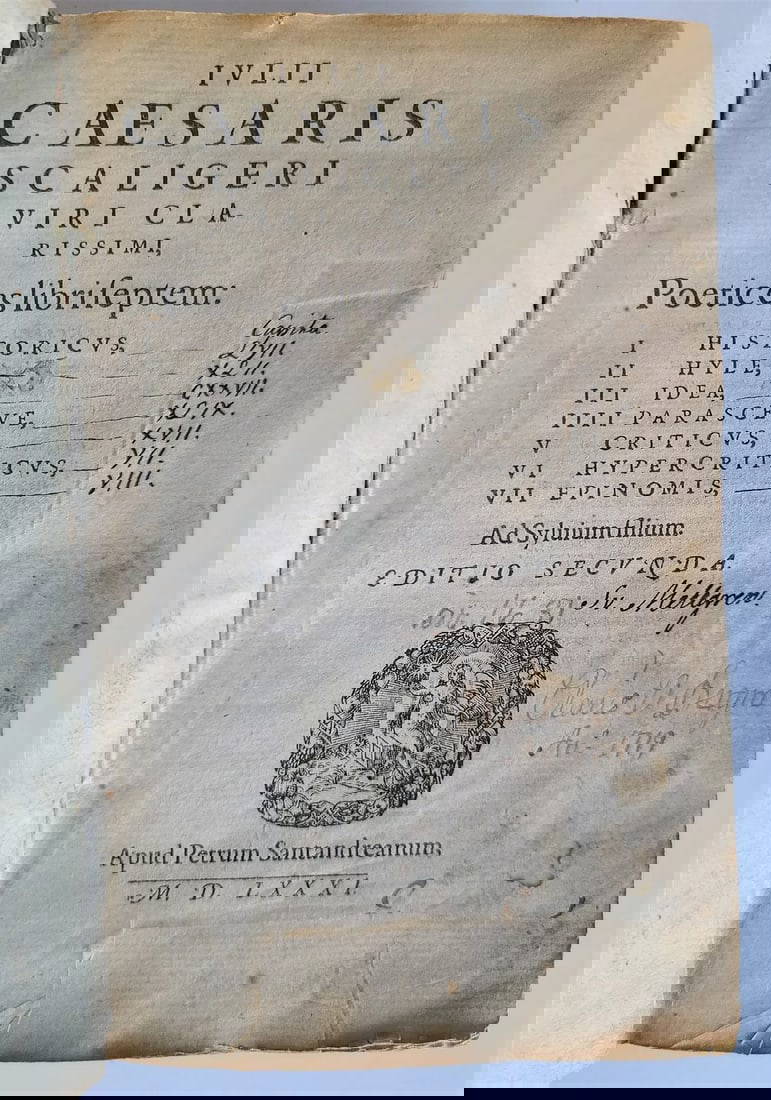 IVLII
CAESARIS
SCALIGERI
VIRI CLA-
RISSIMI,
Poetices libri septem:
Capita
I HISTORICVS, LVII.
II HYLE, XLII.
III IDEA, CXXVII.
IIII PARASCEVE, XLIX.
V CRITICVS, XVII.
VI HYPERCRITICVS, VII.
VII EPINOMIS, VIII.
Ad Syluium filium.
EDITIO SECVNDA
Apud Petrum Santandreanum.
M. D. LXXXI.